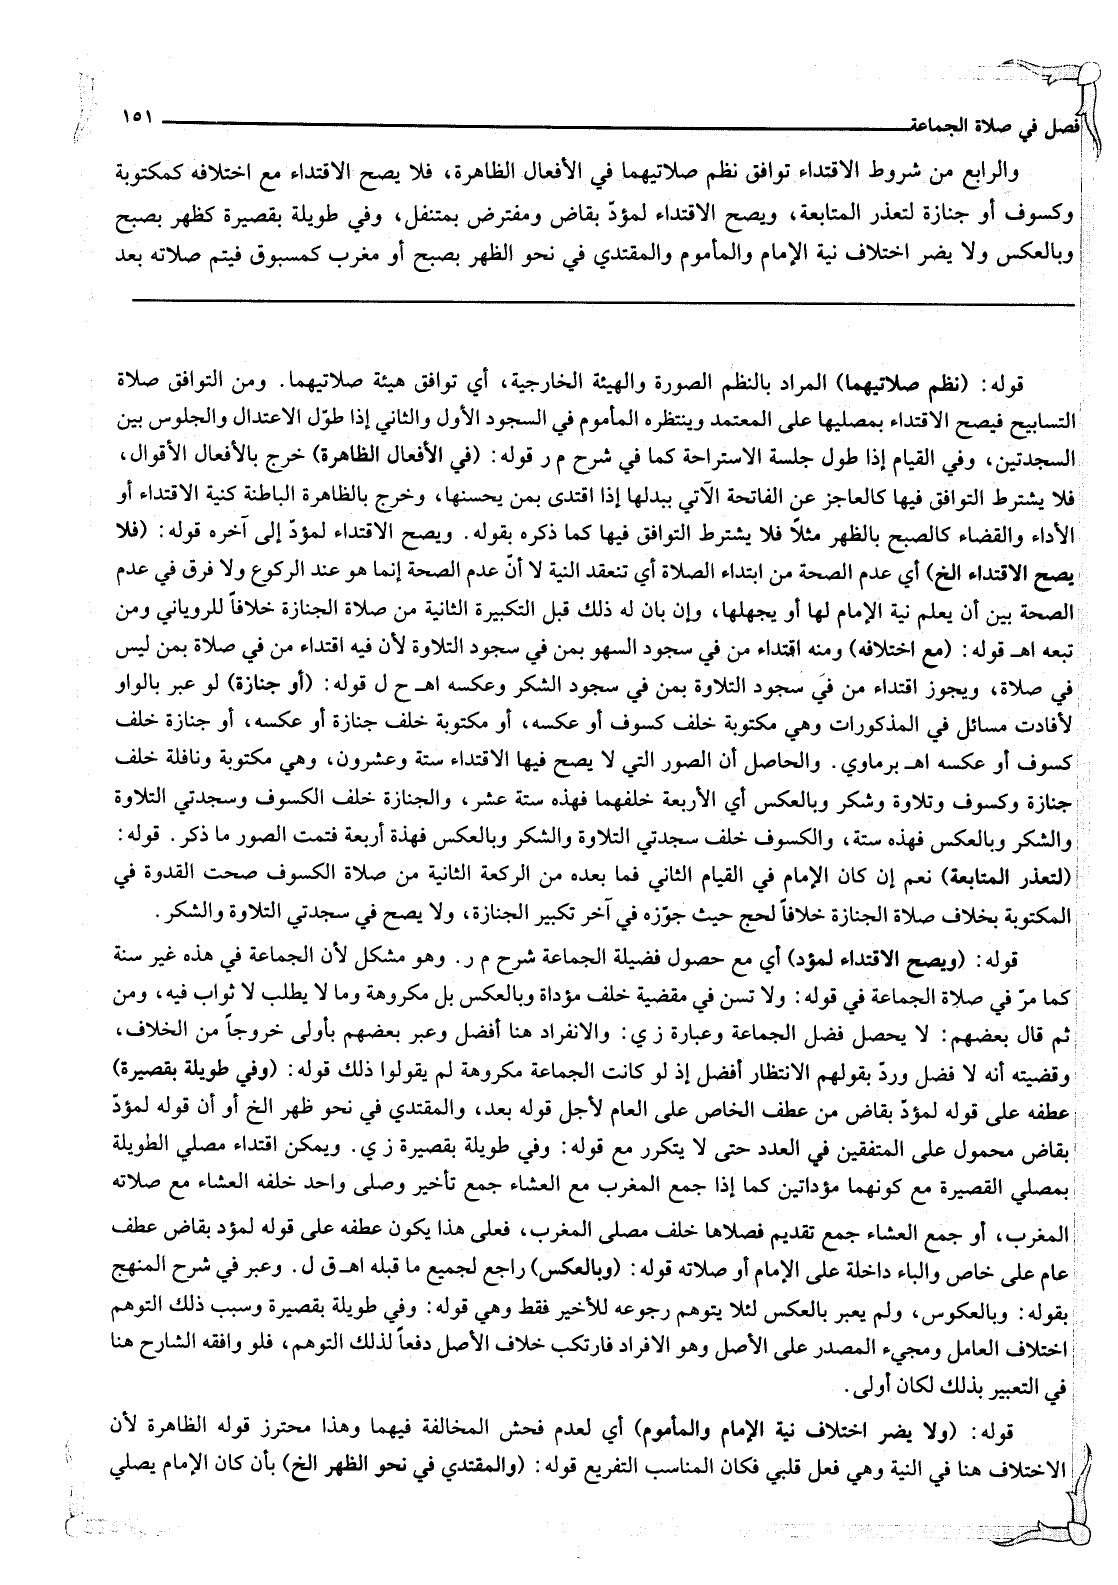 فصل في صلاة الجماعة ١٥١
والرابع من شروط الاقتداء توافق نظم صلاتيهما في الأفعال الظاهرة، فلا يصح الاقتداء مع اختلافه كمكتوبة
وكسوف أو جنازة لتعذر المتابعة، ويصح الاقتداء لمؤدّ بقاض ومفترض بمتنفل، وفي طويلة بقصيرة كظهر بصبح
وبالعكس ولا يضر اختلاف نية الإمام والمأموم والمقتدي في نحو الظهر بصبح أو مغرب كمسبوق فيتم صلاته بعد
قوله: (نظم صلاتيهما) المراد بالنظم الصورة والهيئة الخارجية، أي توافق هيئة صلاتيهما. ومن التوافق صلاة
التسابيح فيصح الاقتداء بمصليها على المعتمد وينتظره المأموم في السجود الأول والثاني إذا طوّل الاعتدال والجلوس بين
السجدتين، وفي القيام إذا طول جلسة الاستراحة كما في شرح م ر قوله: (في الأفعال الظاهرة) خرج بالأفعال الأقوال،
فلا يشترط التوافق فيها كالعاجز عن الفاتحة الآتي ببدلها إذا اقتدى بمن يحسنها، وخرج بالظاهرة الباطنة كنية الاقتداء أو
الأداء والقضاء كالصبح بالظهر مثلاً فلا يشترط التوافق فيها كما ذكره بقوله. ويصح الاقتداء لمؤدّ إلى آخره قوله: (فلا
يصح الاقتداء الخ) أي عدم الصحة من ابتداء الصلاة أي تنعقد النية لا أنّ عدم الصحة إنما هو عند الركوع ولا فرق في عدم
الصحة بين أن يعلم نية الإمام لها أو يجهلها، وإن بان له ذلك قبل التكبيرة الثانية من صلاة الجنازة خلافاً للروياني ومن
تبعه اهـ قوله: (مع اختلافه) ومنه اقتداء من في سجود السهو بمن في سجود التلاوة لأن فيه اقتداء من في صلاة بمن ليس
في صلاة، ويجوز اقتداء من في سجود التلاوة بمن في سجود الشكر وعكسه اهـ ح ل قوله: (أو جنازة) لو عبر بالواو
لأفادت مسائل في المذكورات وهي مكتوبة خلف كسوف أو عكسه، أو مكتوبة خلف جنازة أو عكسه، أو جنازة خلف
كسوف أو عكسه اهـ برماوي. والحاصل أن الصور التي لا يصح فيها الاقتداء ستة وعشرون، وهي مكتوبة ونافلة خلف
جنازة وكسوف وتلاوة وشكر وبالعكس أي الأربعة خلفهما فهذه ستة عشر، والجنازة خلف الكسوف وسجدتي التلاوة
والشكر وبالعكس فهذه ستة، والكسوف خلف سجدتي التلاوة والشكر وبالعكس فهذة أربعة فتمت الصور ما ذكر. قوله:
(لتعذر المتابعة) نعم إن كان الإمام في القيام الثاني فما بعده من الركعة الثانية من صلاة الكسوف صحت القدوة في
المكتوبة بخلاف صلاة الجنازة خلافاً لحج حيث جوّزه في آخر تكبير الجنازة، ولا يصح في سجدتي التلاوة والشكر.
قوله: (ويصح الاقتداء لمؤد) أي مع حصول فضيلة الجماعة شرح م ر. وهو مشكل لأن الجماعة في هذه غير سنة
كما مرّ في صلاة الجماعة في قوله: ولا تسن في مقضية خلف مؤداة وبالعكس بل مكروهة وما لا يطلب لا ثواب فيه، ومن
ثم قال بعضهم: لا يحصل فضل الجماعة وعبارة ز ي: والانفراد هنا أفضل وعبر بعضهم بأولى خروجاً من الخلاف،
وقضيته أنه لا فضل وردّ بقولهم الانتظار أفضل إذ لو كانت الجماعة مكروهة لم يقولوا ذلك قوله: (وفي طويلة بقصيرة)
عطفه على قوله لمؤدّ بقاض من عطف الخاص على العام لأجل قوله بعد، والمقتدي في نحو ظهر الخ أو أن قوله لمؤدّ
بقاض محمول على المتفقين في العدد حتى لا يتكرر مع قوله: وفي طويلة بقصيرة ز ي. ويمكن اقتداء مصلي الطويلة
بمصلي القصيرة مع كونهما مؤداتين كما إذا جمع المغرب مع العشاء جمع تأخير وصلى واحد خلفه العشاء مع صلاته
المغرب، أو جمع العشاء جمع تقديم فصلاها خلف مصلى المغرب، فعلى هذا يكون عطفه على قوله لمؤد بقاض عطف
عام على خاص والباء داخلة على الإمام أو صلاته قوله: (وبالعكس) راجع لجميع ما قبله اهـ ق ل. وعبر في شرح المنهج
بقوله: وبالعكوس، ولم يعبر بالعكس لئلا يتوهم رجوعه للأخير فقط وهي قوله: وفي طويلة بقصيرة وسبب ذلك التوهم
اختلاف العامل ومجيء المصدر على الأصل وهو الافراد فارتكب خلاف الأصل دفعاً لذلك التوهم، فلو وافقه الشارح هنا
في التعبير بذلك لكان أولى.
قوله: (ولا يضر اختلاف نية الإمام والمأموم) أي لعدم فحش المخالفة فيهما وهذا محترز قوله الظاهرة لأن
الاختلاف هنا في النية وهي فعل قلبي فكان المناسب التفريع قوله: (والمقتدي في نحو الظهر الخ) بأن كان الإمام يصلي